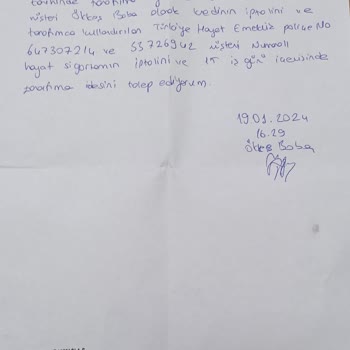 tarihinde tarafıma
müşteri Ökkeş Baba olarak kredinin iptalini ve
tarafımca kullandırılan Türkiye Hayat Emeklilik poliçe No
647307214 ve 55726942 müşteri Numaralı
hayat sigortamın iptalini ve 15 iş günü içerisinde
tarafıma iadesini talep ediyorum.
19.01.2024
16.29
Ökkeş Baba